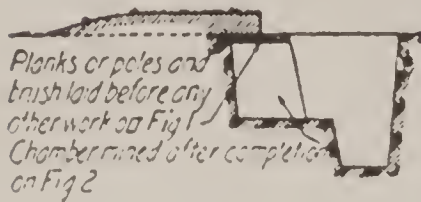 Planks or poles and
brush laid before any
other work on Fig 1
Chamber mined after completion
on Fig 2